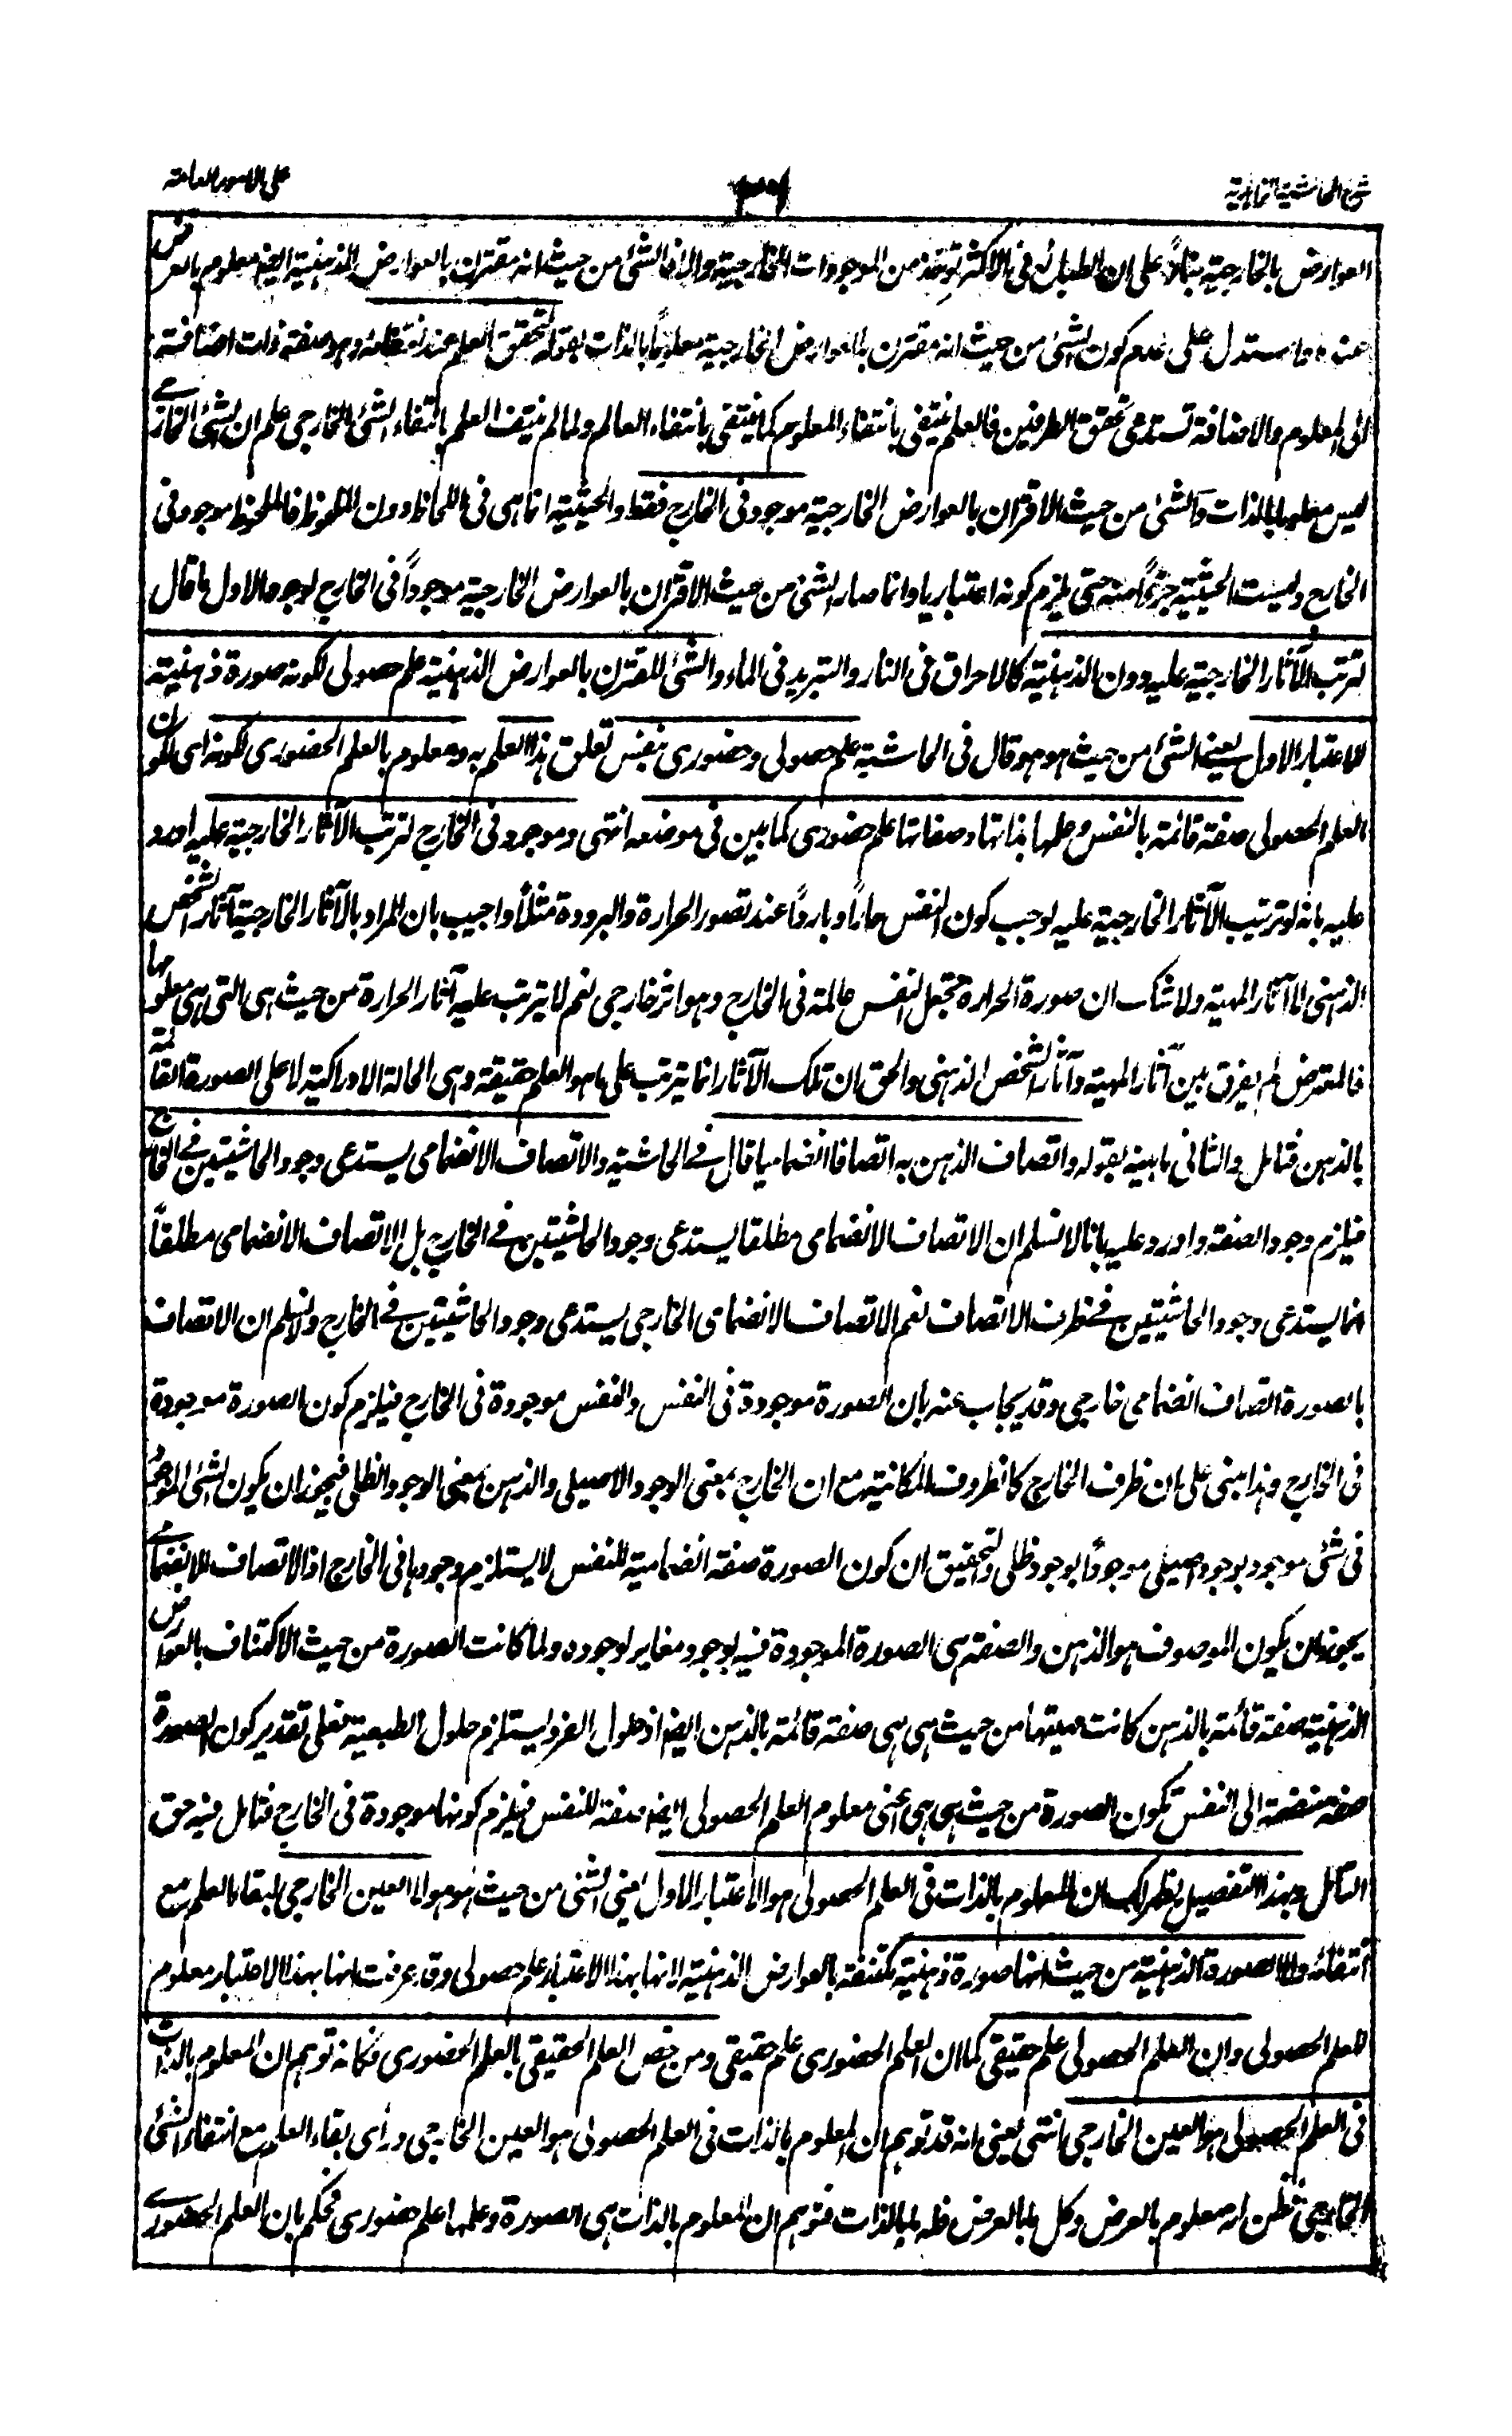 شرح الحاشية الزاهدية
على الامور العامة
العوارض بالخارجية بناءً على ان الطبائع فى الاكثر توخذ من الموجودات الخارجية والا فالشئ من حيث انه مقترن بالعوارض الذهنية ايضا معلوم بالعرض
عنده واستدل على عدم كون الشئ من حيث انه مقترن بالعوارض الخارجية معلوما بالذات بقوله لتحقق العلم عند انتفائه وهو صفة ذات اضافة
الى المعلوم والاضافة تستدعى تحقق الطرفين فالعلم ينتفى بانتفاء المعلوم كما ينتفى بانتفاء العالم ولما لم ينتف العلم بانتفاء الشئ الخارجى علم ان الشئ الخارجى
ليس معلوما بالذات والشئ من حيث الاقتران بالعوارض الخارجية موجود فى الخارج فقط والحيثية انما هى فى اللحاظ دون الملحوظ فالملحوظ موجود فى
الخارج وليست الحيثية جزءً منه حتى يلزم كونه اعتباريا وانما صار الشئ من حيث الاقتران بالعوارض الخارجية موجوداً فى الخارج لوجوه الاول ما قال
لترتب الآثار الخارجية عليه دون الذهنية كالاحراق فى النار والتبريد فى الماء والشئ المقترن بالعوارض الذهنية علم حصولى لكونه صورة ذهنية
للاعتبار الاول يعنى الشئ من حيث هو هو قال فى الحاشية علم حصولى وحضورى بنفس تعلق هذا العلم به ومعلوم بالعلم الحضورى لكونه اى لكون
العلم الحصولى صفة قائمة بالنفس وعلمها بذاتها وصفاتها علم حضورى كما بين فى موضعه انتهى وموجود فى الخارج لترتب الآثار الخارجية عليه اورد
عليه بانه لو ترتيب الآثار الخارجية عليه لوجب كون النفس حاراً وبارداً عند تصور الحرارة والبرودة مثلاً واجيب بان المراد بالآثار الخارجية آثار الشخص
الذهنى لا آثار المهية ولا شك ان صورة الحرارة تجعل النفس عالمة فى الخارج وهو اثر خارجى نعم لا يترتب عليه آثار الحرارة من حيث هى التى هى معلومها
فالمعترض لم يفرق بين آثار المهية وآثار الشخص الذهنى والحق ان تلك الآثار انما يترتب على ما هو العلم حقيقة وهى الحالة الادراكية لا على الصورة القائمة
بالذهن فتامل والثانى ما بينه بقوله واتصاف الذهن به اتصافا انضماميا قال فى الحاشية والاتصاف الانضمامى يستدعى وجود الحاشيتين فى الخارج
فيلزم وجود الصفة واورد عليه بانا لا نسلم ان الاتصاف الانضمامى مطلقا يستدعى وجود الحاشيتين فى الخارج بل الاتصاف الانضمامى مطلقاً
انما يستدعى وجود الحاشيتين فى ظرف الاتصاف نعم الاتصاف الانضمامى الخارجى يستدعى وجود الحاشيتين فى الخارج ولا نسلم ان الاتصاف
بالصورة اتصاف انضمامى خارجى وقد يجاب عنه بأن الصورة موجودة فى النفس والنفس موجودة فى الخارج فيلزم كون الصورة موجودة
فى الخارج وهذا مبنى على ان ظرف الخارج كالظروف المكانية مع ان الخارج بمعنى الوجود الاصيلى والذهن بمعنى الوجود الظلى فيجوز ان يكون الشئ الموجود
فى شئ موجود بوجود اصيلى موجوداً بوجود ظلى والتحقيق ان كون الصورة صفة انضمامية للنفس لا يستلزم وجودها فى الخارج اذ الاتصاف الانضمامى
يجوز ان يكون الموصوف هو الذهن والصفة هى الصورة الموجودة فيه بوجود مغاير لوجوده ولما كانت الصورة من حيث الاكتناف بالعوارض
الذهنية صفة قائمة بالذهن كانت مهيتها من حيث هى هى صفة قائمة بالذهن ايضا اذ حلول الفرد يستلزم حلول الطبعية فعلى تقدير كون الصورة
صفة منضمة الى النفس تكون الصورة من حيث هى هى اعنى معلوم العلم الحصولى ايضا صفة للنفس فيلزم كونها موجودة فى الخارج فتامل فيه حق
التأمل وبهذا التفصيل يظهر لك ان المعلوم بالذات فى العلم الحصولى هو الاعتبار الاول اعنى الشئ من حيث هو هو لا العين الخارجى لبقاء العلم مع
انتفائه ولا الصورة الذهنية من حيث انها صورة ذهنية مكتنفة بالعوارض الذهنية لانها بهذا الاعتبار علم حصولى وقد عرفت انها بهذا الاعتبار معلوم
للعلم الحصولى وان العلم الحصولى علم حقيقى كما ان العلم الحضورى علم حقيقى ومن خص العلم الحقيقى بالعلم الحضورى فكانه توهم ان المعلوم بالذات
فى العلم الحصولى هو العين الخارجى انتهى يعنى انه قد توهم ان المعلوم بالذات فى العلم الحصولى هو العين الخارجى ورأى بقاء العلم مع انتفاء الشئ
الخارجى فظن انه معلوم بالعرض وكل ما بالعرض فله ما بالذات فتوهم ان المعلوم بالذات هى الصورة وعلمها علم حضورى فحكم بان العلم الحضورى